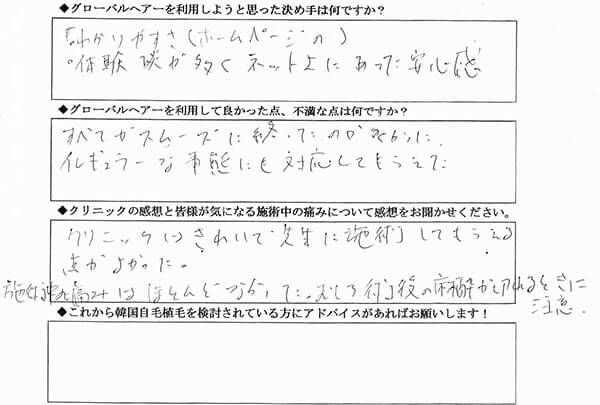 ◆グローバルヘアーを利用しようと思った決め手は何ですか？
・わかりやすさ(ホームページの)
・体験談が多くネット上にあった安心感
◆グローバルヘアーを利用して良かった点、不満な点は何ですか？
すべてがスムーズに終ったのが良かった。
イレギュラーな事態にも対応してもらえた
◆クリニックの感想と皆様が気になる施術中の痛みについて感想をお聞かせください。
クリニックはきれいで先生に施術してもらえる
点がよかった。
施術中の痛みはほとんどなかった。むしろ術後の麻酔が切れるときに
注意.
◆これから韓国自毛植毛を検討されている方にアドバイスがあればお願いします！